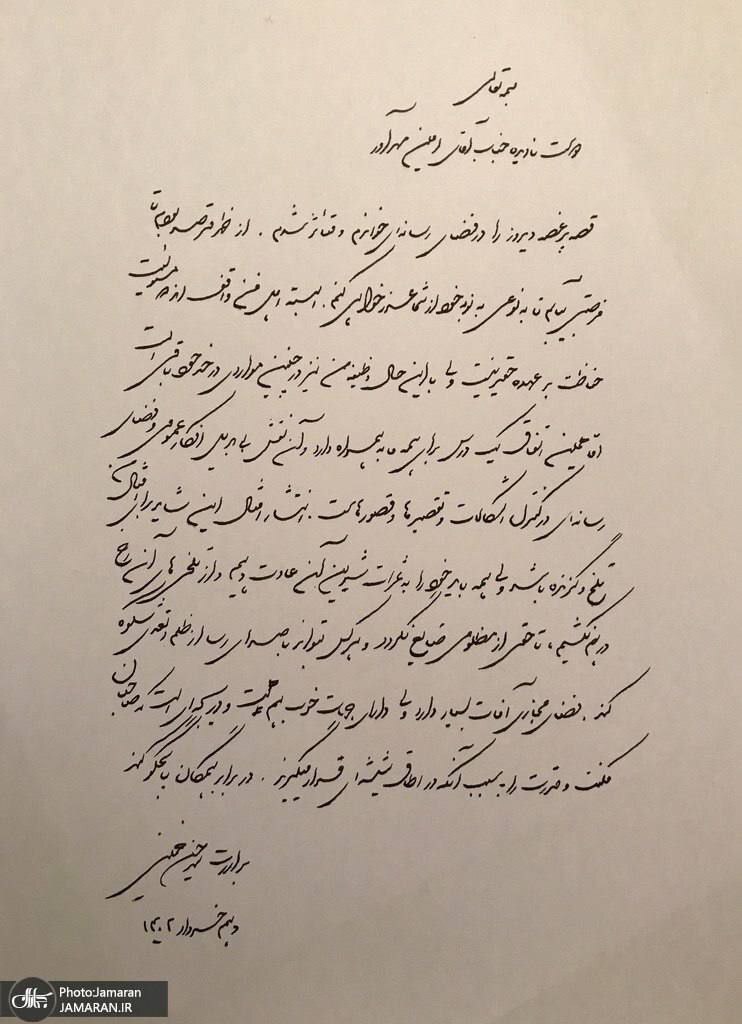 بسمه تعالی
دوست نادیده جناب آقای امین مهرآور
قصه پرغصه دیروز را در فضای رسانه‌ای خواندم و متاثر شدم. از خدا فرصت
فرصتی بیابم تا به نوعی به نوبه خود از شما عذرخواهی کنم. البته اهل فن واقف‌اند مسئولیت
حفاظت بر عهده حقیر نیست ولی با این حال وظیفه من نیز در چنین مواردی در حد خود باقی است
اما همین اتفاق یک درس برای همه ما به همراه دارد و آن نقش بی‌بدیل افکار عمومی و فضای
رسانه‌ای در کنترل اشکالات و تقصیرها و قصورهاست. انتشار امثال این شاید برای امثال ما
تلخ و گزنده باشد ولی همه باید خود را به ثمرات شیرین آن عادت دهیم و از تلخی‌های آن رخ
در هم نکشیم، تا حقی از مظلومی ضایع نگردد و هر کس بتواند با صدای رسا از ظلم و تعدی شکوه
کند. فضای مجازی آفات بسیار دارد ولی دارای جهات خوب هم هست و دریچه‌ای است که صاحبان
مکنت و قدرت را به سبب آنکه در اطاق شیشه‌ای قرار میگیرند. در برابر همگان پاسخگو کند
برادرت سید حسن خمینی
دهم خرداد ۱۴۰۲
جماران
Photo:Jamaran
JAMARAN.IR